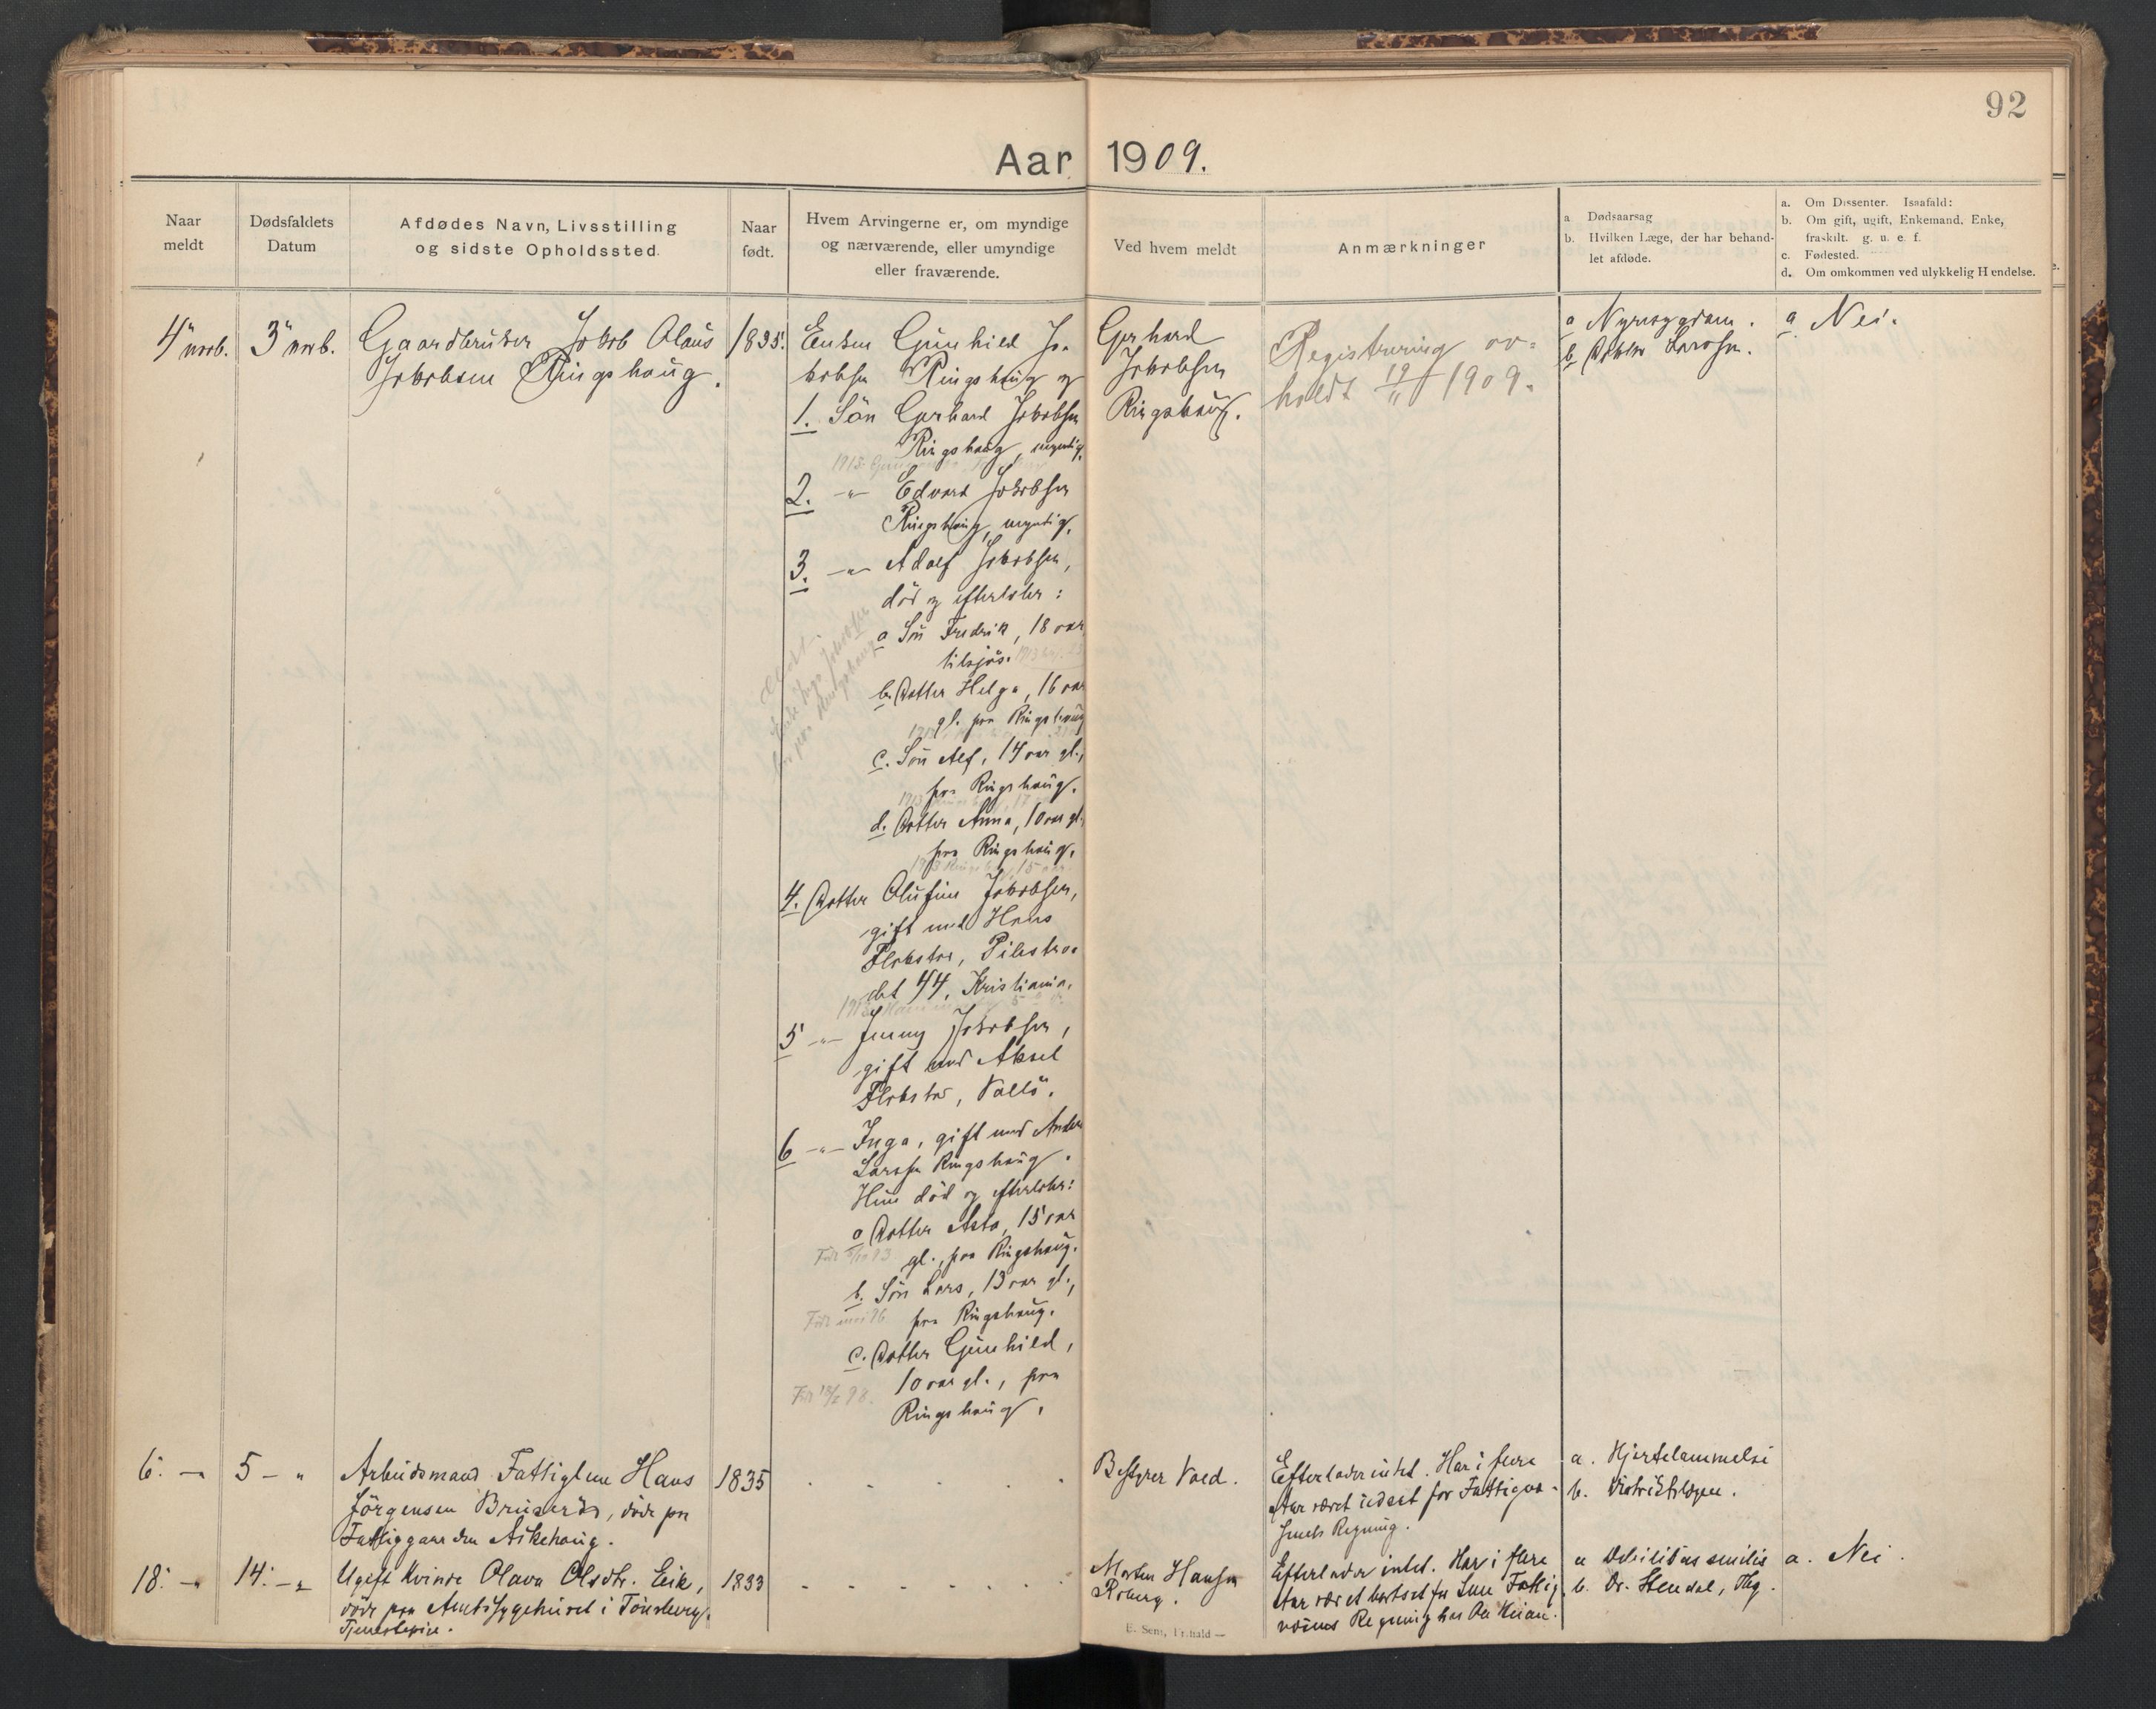 92
Aar 1909.
Naar meldt
Dødsfaldets Datum
Afdødes Navn, Livsstilling og sidste Opholdssted.
Naar født.
Hvem Arvingerne er, om myndige og nærværende, eller umyndige eller fraværende.
Ved hvem meldt
Anmærkninger
a Dødsaarsag
b. Hvilken Læge, der har behandlet afdøde.
a. Om Dissenter. Isaafald:
b. Om gift, ugift, Enkemand, Enke, fraskilt. g. u. e. f.
c. Fødested.
d. Om omkommen ved ulykkelig Hændelse.
4 novb.
3 novb.
Gaardbruker Jakob Olaus
Jakobsen Ringshaug.
1835.
Enken Gunhild Ja-
kobsen Ringshaug og
1. Sön Gerhard Jakobsen
Ringshaug, myndig.
2. -"- Edvard Jakobsen
Ringshaug, myndig.
3. -"- Adolf Jakobsen,
död og efterlater:
a Sön Fredrik, 18 aar
tilsjøs.
b. Datter Helga, 16 aar
gl. paa Ringshaug
c. Sön Alf, 14 aar gl.,
paa Ringshaug.
d. Datter Anna, 10 aar gl.
paa Ringshaug.
4. Datter Olufine Jakobsen,
gift med Hans
Flakstad, Pilestræ-
det 44, Kristiania.
5 -"- Jenny Jakobsen,
gift med Aksel
Flakstad, Vallö.
6 -"- Inga, gift med Anders
Larsen Ringshaug.
Hun död og efterlater:
a Datter Asta, 15 aar
gl., paa Ringshaug.
b. Sön Lars, 13 aar gl.,
paa Ringshaug.
c. Datter Gunhild,
10 aar gl., paa
Ringshaug.
Gerhard
Jakobsen
Ringshaug.
Registrering av-
holdt 19/11 1909.
a Nyresygdom.
b Doktor Larsen.
a Nei.
6. -"-
5 - "
Arbeidsmand Fattiglem Hans
Jörgensen Bruseröd, döde paa
Fattiggaarden Askehaug.
1835
Bestyrer Vold.
Efterlader intet. Har i flere
Aar været udsat for Fattigvæ-
senets Regning.
a. Hjertelammelse
b. Distriktslægen.
18. -"-
14. -"-
Ugift Kvinde Olava Olsdtr. Eik,
döde paa Amtssygehuset i Tönsberg.
Tjenestepige.
1833
Morten Hansen
Efterlader intet. Har i flere
Aar været bortsat for Sem Fattig-
væsens Regning hos
a Debilitas senilis
b. Dr. Stendal, Tbg.
a. Nei.
E. Sem, Fr.hald —